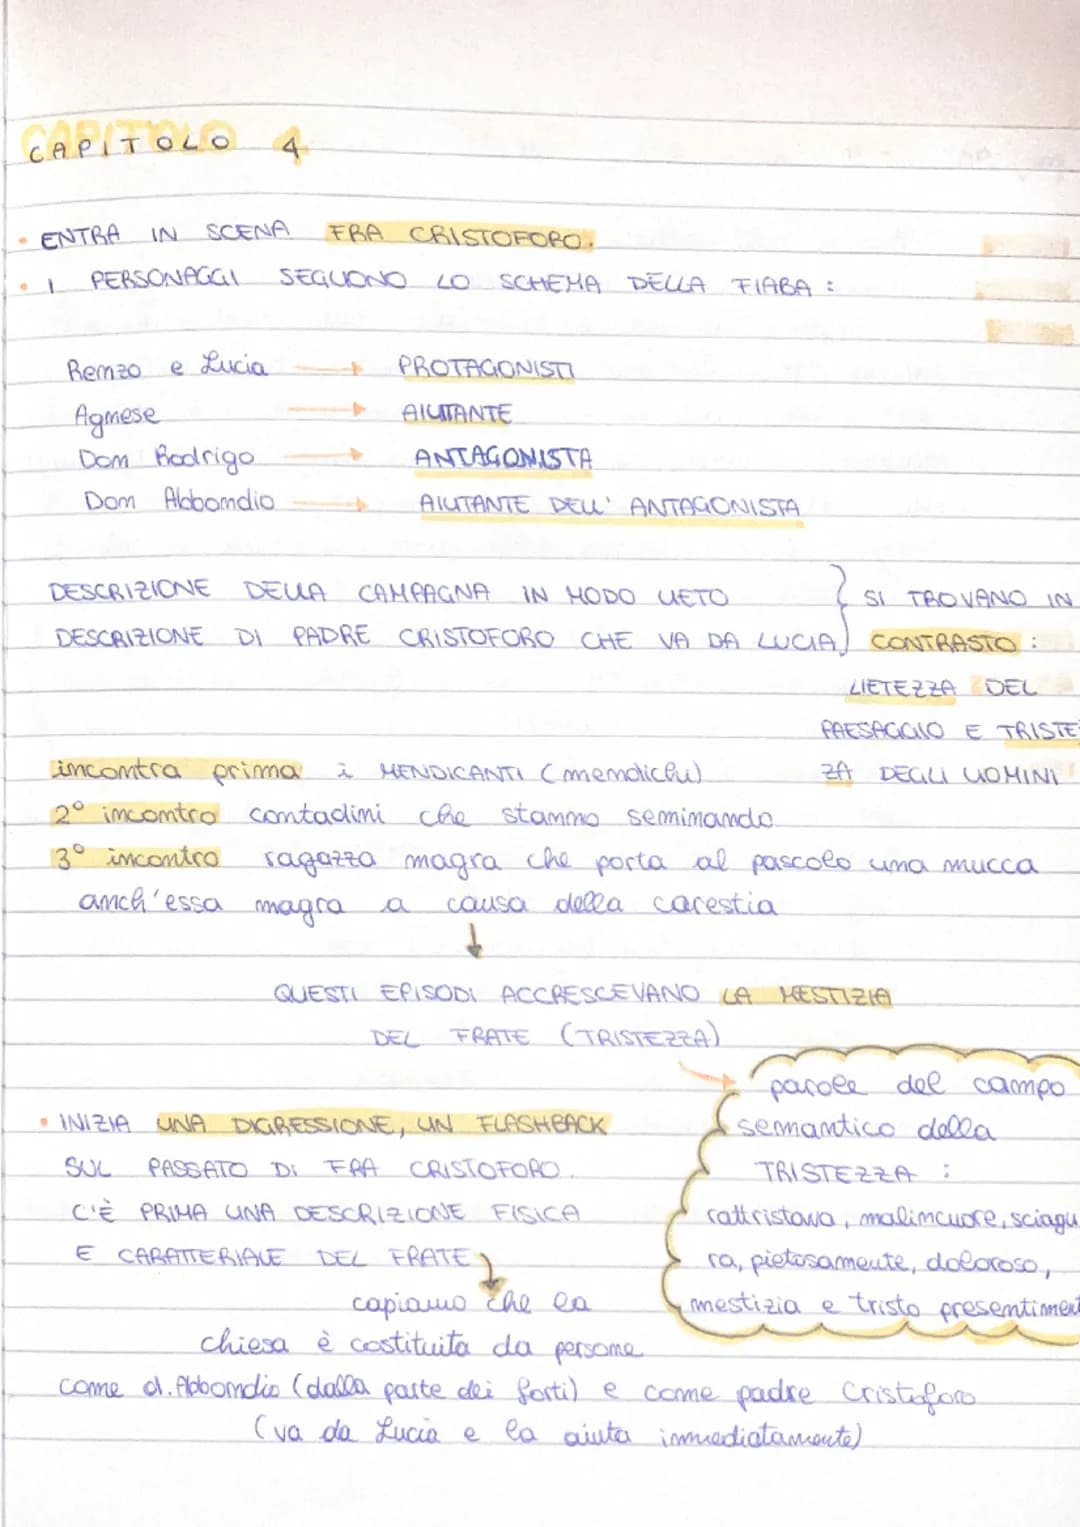 CAPITOLO 4
• ENTRA IN SCENA FRA CRISTOFORO.
• I PERSONAGGI SEGUONO LO SCHEMA DELLA FIABA :
Renzo e Lucia → PROTAGONISTI
Agnese → AIUTANTE
Don Rodrigo → ANTAGONISTA
Don Abbondio → AIUTANTE DELL' ANTAGONISTA
DESCRIZIONE DELLA CAMPAGNA IN MODO LIETO } SI TROVANO IN
DESCRIZIONE DI PADRE CRISTOFORO CHE VA DA LUCIA } CONTRASTO :
LIETEZZA DEL
PAESAGGIO E TRISTEZ
ZA DEGLI UOMINI
incontra prima i MENDICANTI (mendichi)
2° incontro contadini che stanno seminando
3° incontro ragazza magra che porta al pascolo una mucca
anch'essa magra a causa della carestia
↓
QUESTI EPISODI ACCRESCEVANO LA MESTIZIA
DEL FRATE (TRISTEZZA)
→ parole del campo
semantico della
TRISTEZZA :
rattristava, malincuore, sciagu
ra, pietosamente, doloroso,
mestizia e tristo presentiment
• INIZIA UNA DIGRESSIONE, UN FLASHBACK
SUL PASSATO DI FRA CRISTOFORO.
C'È PRIMA UNA DESCRIZIONE FISICA
E CARATTERIALE DEL FRATE
capiamo che la
chiesa è costituita da persone
come d. Abbondio (dalla parte dei forti) e come padre Cristoforo
(va da Lucia e la aiuta immediatamente)